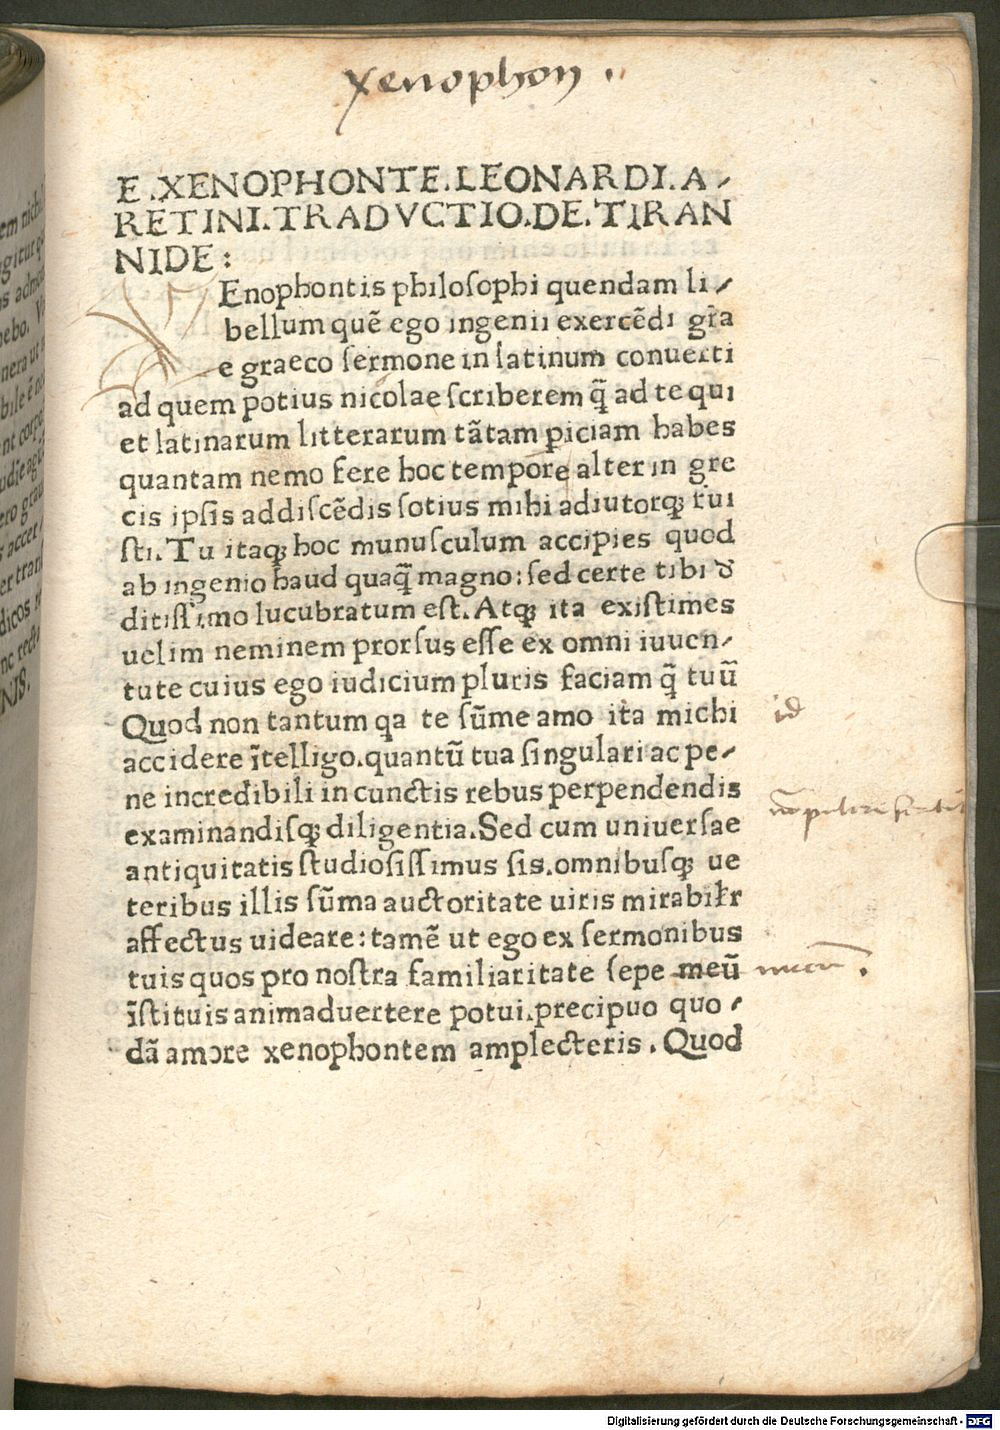 xenophon .
E.XENOPHONTE.LEONARDI.A-
RETINI.TRADVCTIO.DE.TIRAN
NIDE:
Enophontis philosophi quendam li-
bellum quē ego ingenii exercēdi gr̄a
e graeco sermone in latinum conuerti
ad quem potius nicolae scriberem q̄ ad te qui
et latinarum litterarum tātam ꝑiciam habes
quantam nemo fere hoc tempore alter in gre
cis ipsis addiscēdis sotius mihi adiutorqꝫ fui
sti. Tu itaqꝫ hoc munusculum accipies quod
ab ingenio haud quaq̄ magno: sed certe tibi d
ditissimo lucubratum est. Atqꝫ ita existimes
uelim neminem prorsus esse ex omni iuuen-
tute cuius ego iudicium pluris faciam q̄ tuū
Quod non tantum qa te sūme amo ita michi
accidere ītelligo.quantū tua singulari ac pe-
ne incredibili in cunctis rebus perpendendis
examinandisqꝫ diligentia.Sed cum uniuersae
antiquitatis studiosissimus sis.omnibusqꝫ ue
teribus illis sūma auctoritate uiris mirabilr
affectus uideare: tamē ut ego ex sermonibus
tuis quos pro nostra familiaritate sepe meū
īstituis animaduertere potui.precipuo quo-
dā amore xenophontem amplecteris. Quod
id
Digitalisierung gefördert durch die Deutsche Forschungsgemeinschaft - DFG